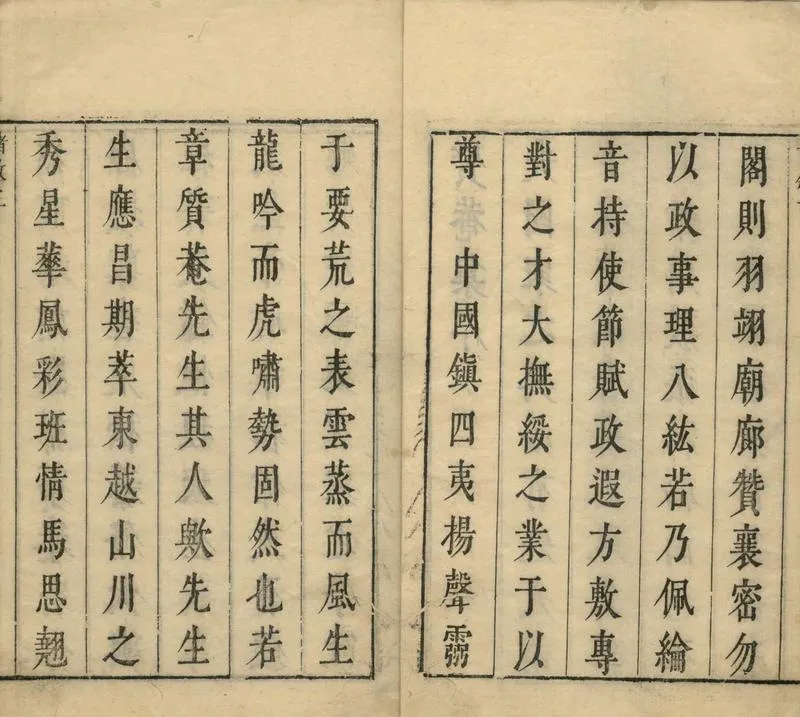 閣則羽翊廟廊贊襄密勿
以政事理八紘若乃佩綸
音持使節賦政遐方敷專
對之才大撫綏之業于以
尊 中國鎮四夷揚聲靈
于要荒之表雲蒸而風生
龍吟而虎嘯勢固然也若
章質菴先生其人歟先生
生應昌期萃東越山川之
秀星華鳳彩班情馬思翹